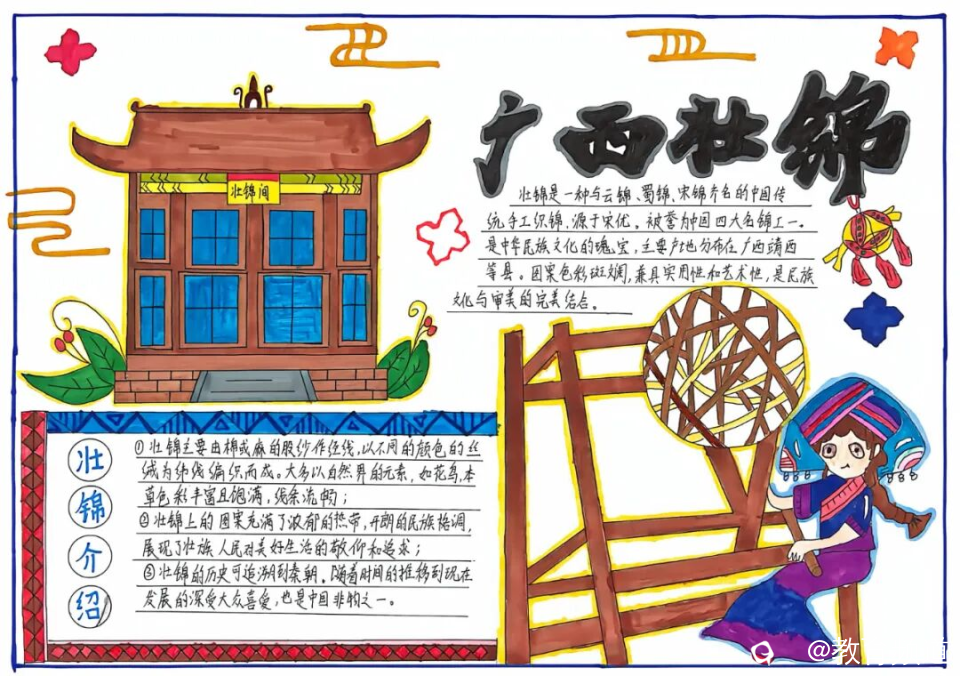 广西壮锦
壮锦间
壮锦是一种与云锦、蜀锦、宋锦齐名的中国传
统手工织锦,源于宋优。被誉为中国四大名锦工一。
是中华民族文化的瑰宝,主要产地分布在广西靖西
等县。图案色彩斑斓,兼具实用性和艺术性,是民族
文化与审美的完美结合。
壮锦介绍
①壮锦主要由棉或麻的股纱作经线,以不同的颜色的丝
绒为纬线编织而成。大多以自然界的元素,如花鸟,本
草色彩丰富且饱满,线条流畅;
②壮锦上的图案充满了浓郁的热带,开朗的民族格调,
展现了壮族人民对美好生活的敬仰和追求;
③壮锦的历史可追溯到秦朝。随着时间的推移到现在
发展的深受大众喜爱,也是中国非物之一。
@教